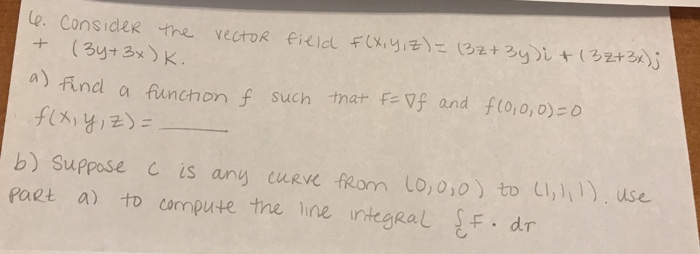 6. Consider the vector field F(x,y,z)= (3z+3y)i + (3z+3x)j
+ (3y+3x)K.
a) Find a function f such that F=∇f and f(0,0,0)=0
f(x,y,z)= ______
b) Suppose C is any curve from (0,0,0) to (1,1,1). Use
part a) to compute the line integral ∫C F · dr